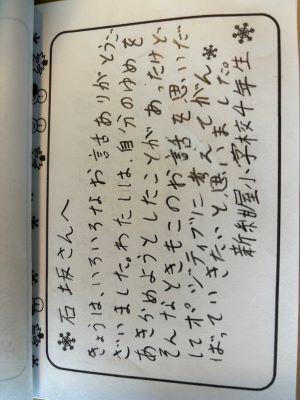 石坂さんへ
きょうは、いろいろなお話ありがとうご
ざいました。わたしは、自分のゆめを
あきらめようとしたことがあったけど、
そんなときもこのお話を思いだ
してポジティブに考えてがん
ばっていきたいと思いました。
新紺屋小学校4年生